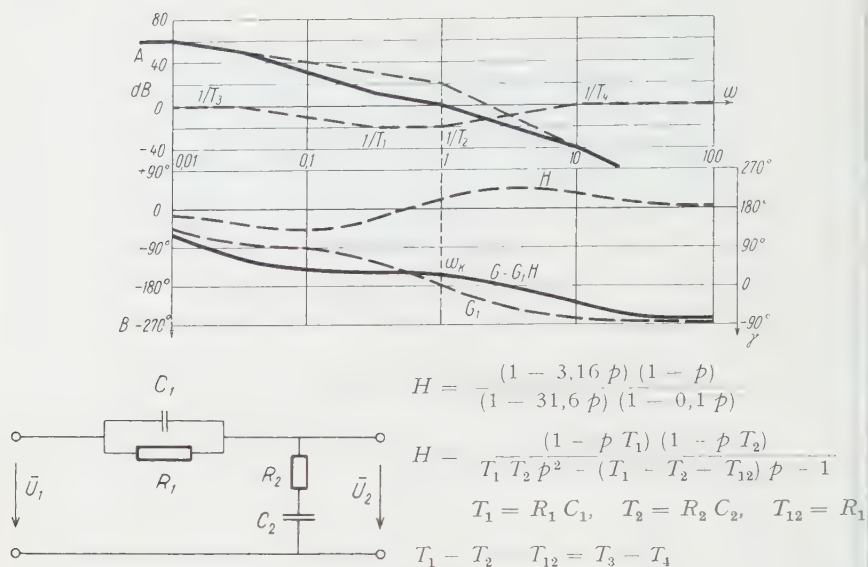 80
A 40
dB
0
-40
1/T3
1/T1
1/T2
1/T4
ω
0,01 0,1 1 10 100
+90°
0
-90°
-180°
B -270°
270°
180°
90°
0
-90°
γ
H
ωK
G - G1H
G1
C1
R1
R2
C2
Ū1
Ū2
H = (1 - 3,16 p) (1 - p) / (1 - 31,6 p) (1 - 0,1 p)
H - (1 - p T1) (1 - p T2) / T1 T2 p² - (T1 - T2 - T12) p - 1
T1 = R1 C1, T2 = R2 C2, T12 = R1
T1 - T2 T12 = T3 - T4